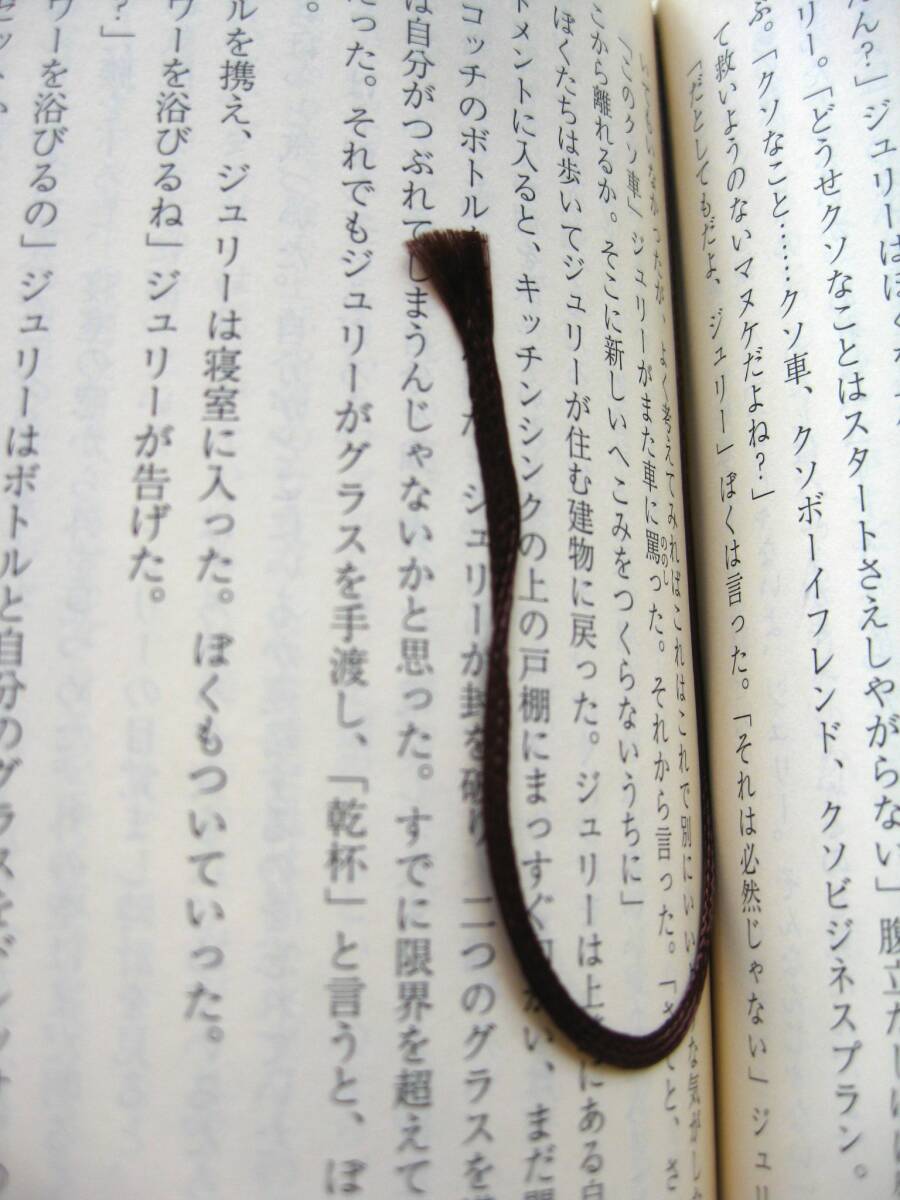 ん？」ジュリーはぼく
リー。「どうせクソなことはスタートさえしやがらない」腹立たしげ
ぶ。「クソなこと……クソ車、クソボーイフレンド、クソビジネスプラン。
て救いようのないマヌケだよね？」
「だとしてもだよ、ジュリー」ぼくは言った。「それは必然じゃない」ジュリ
よく考えてみればこれはこれで別にいい な気がし
「このクソ車」ジュリーがまた車に罵った。それから言った。「さてと、さ
ののし
こから離れるか。そこに新しいへこみをつくらないうちに」
ぼくたちは歩いてジュリーが住む建物に戻った。ジュリーは上 にある自
トメントに入ると、キッチンシンクの上の戸棚にまっすぐ かい、まだ
コッチのボトル ジュリーが封を破り、二つのグラスを
は自分がつぶれてしまうんじゃないかと思った。すでに限界を超えて
った。それでもジュリーがグラスを手渡し、「乾杯」と言うと、ぼ
。
ルを携え、ジュリーは寝室に入った。ぼくもついていった。
ワーを浴びるね」ジュリーが告げた。
？」
ワーを浴びるの」ジュリーはボトルと自分のグラスを